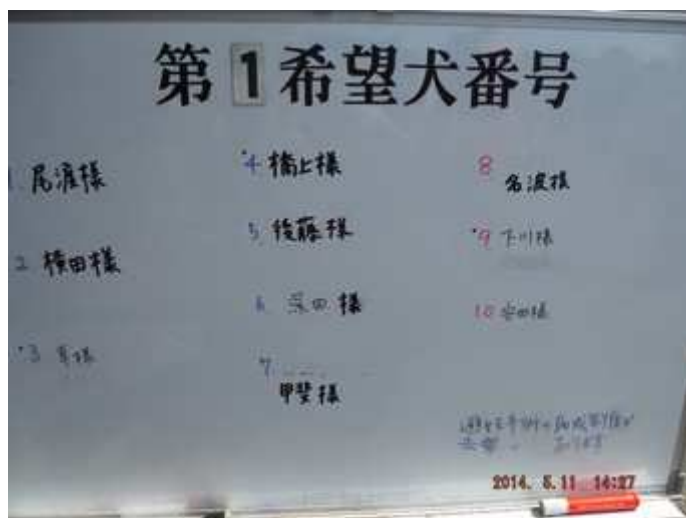 第1希望犬番号
1 尾渡様
2 横田様
・3
・4 橋上様
5 後藤様
6 采田様
7
甲斐様
8
名波様
・9 下川様
10 様
2014. 5.11 14:27